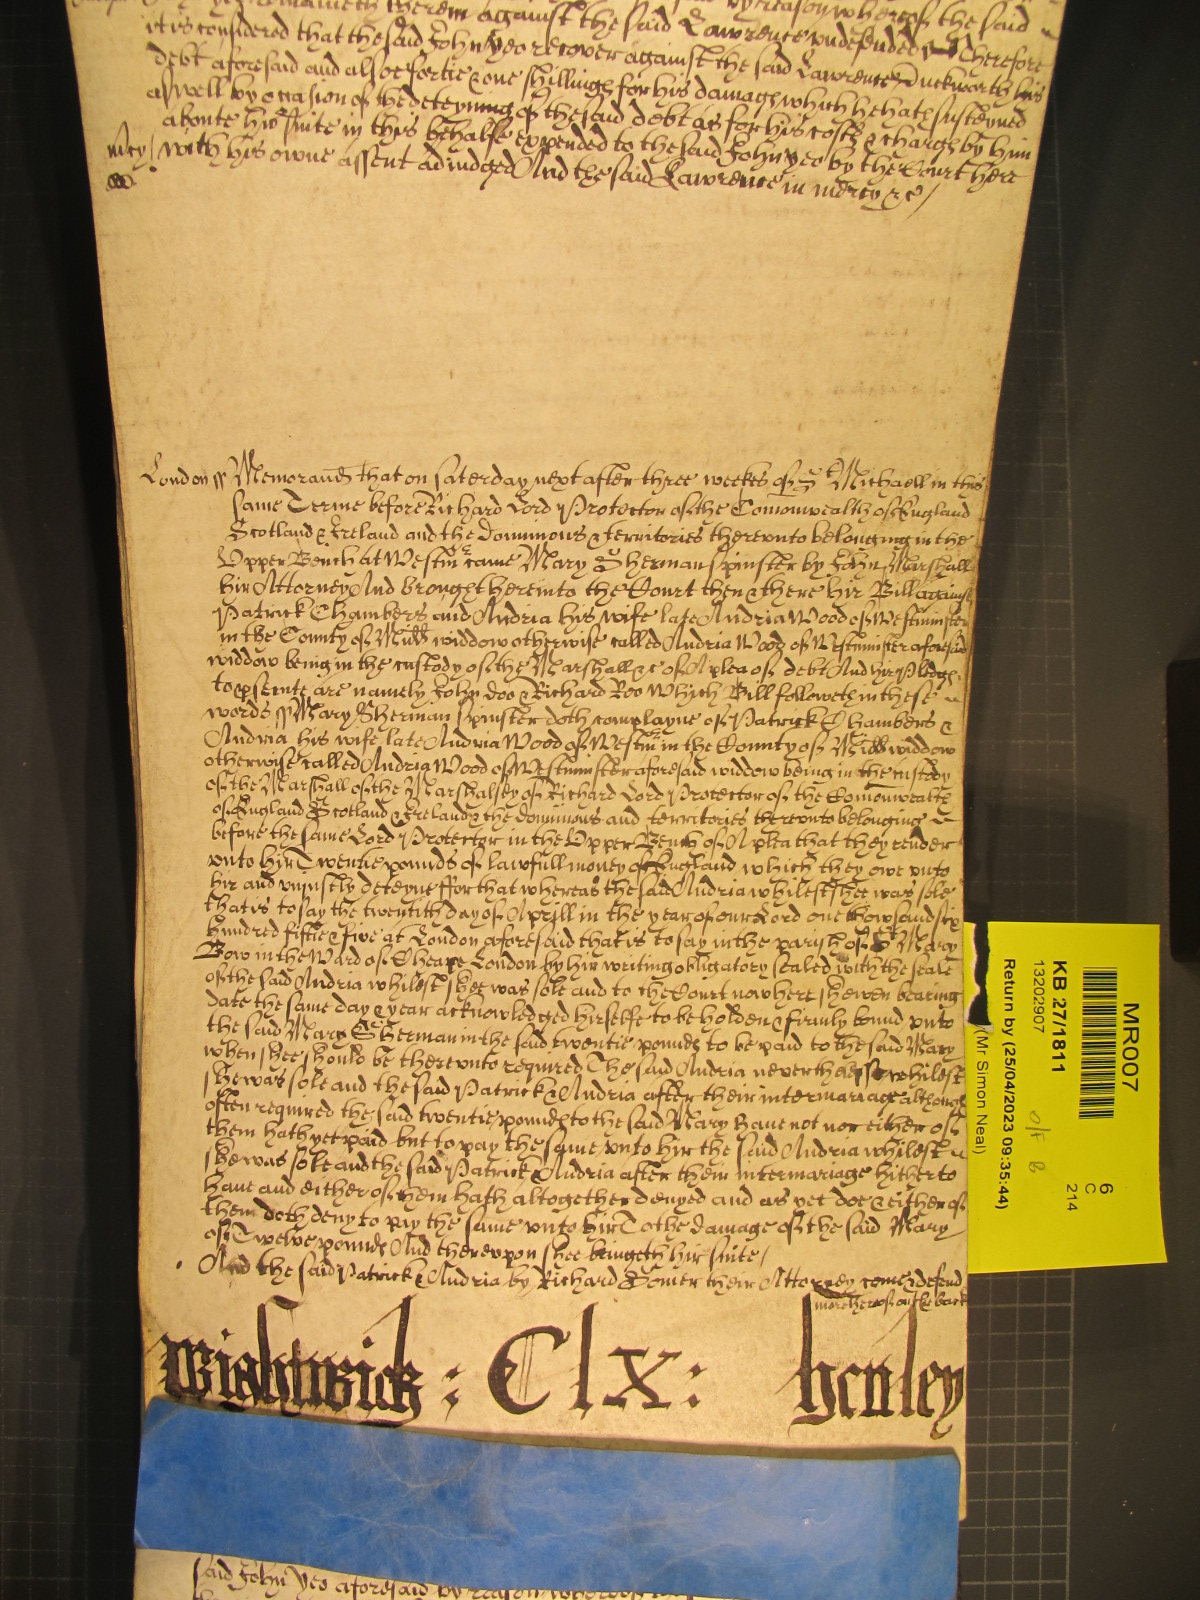 yeo remaineth therein against the said Lawrence undefended Therefore
it is considered that the said John Yeo recover against the said Lawrence Duckworth his
debt aforesaid and alsoe fortie & one shillings for his damages which he hath susteyned
aswell by occasion of the deteyning of the said debt as for his costs & charges by him
aboute his suite in this behalfe expended to the said John Yeo by the Court here
mercy / with his owne assent adiudged And the said Lawrence in mercy &c /
London ss Memorand that on Saterday next after three weekes of St Michaell in this
same Terme before Richard Lord Protector of the Comonwealth of England
Scotland & Ireland and the Dominions & territories thereunto belonging in the
Upper Bench at Westm came Mary Sherman Spinster by John Marshall
hir Attorney And brought here into the Court then & there hir Bill against
Patrick Chambers and Audria his wife late Audria Wood of Westminster
in the County of Midd widdow otherwise called Audria Wood of Westminster aforesaid
widdow being in the custody of the Marshall &c of A plea of debt And hir Pledges
to psecute are namely John Doo & Richard Roo Which Bill followeth in these
words ss Mary Sherman Spinster doth complayne of Patrick Chambers &
Audria his wife late Audria Wood of Westm in the County of Midd widdow
otherwise called Audria Wood of Westminster aforesaid widdow being in the custody
of the Marshall of the Marshalsey of Richard Lord Protector of the Comonwealth
of England Scotland & Ireland & the dominions and territories thereunto belonging
before the same Lord Protector in the Upper Bench of A plea that they render
unto hir Twentie pounds of lawfull money of England which they owe unto
hir and uniustly deteyne ffor that whereas the said Audria whilest shee was sole
that is to say the twentith day of Aprill in the year of our Lord one thowsand six
hundred fiftie & five at London aforesaid that is to say in the parish of St Mary
Bow in the Ward of Cheape London by hir writing obligatory sealed with the seale
of the said Audria whilest shee was sole and to the Court now here shewen bearing
date the same day & year acknowledged hirselfe to be holden & firmly bound unto
the said Mary Sherman in the said twentie pounds to be paid to the said Mary
when shee should be thereunto required The said Audria neverthelesse whilest
she was sole and the said Patrick & Audria after their intermariage although
often required the said twentie pounds to the said Mary have not nor either of
them hath yet paid but to pay the same unto hir the said Audria whilest
she was sole and the said Patrick & Audria after their intermariage hitherto
have and either of them hath altogether denyed and as yet doe & either of
them doth deny to pay the same unto hir To the damage of the said Mary
of Twelve pounds And thereupon shee bringeth hir suite /
And the said Patrick & Audria by Richard Somer their Attorney come & defend
more hereof on the back
Wightwick : Clx : henley
said John Yeo aforesaid by reason whereof the
MR007
6
C
214
KB 27/1811
13202907
Return by (25/04/2023 09:35:44)
(Mr Simon Neal)